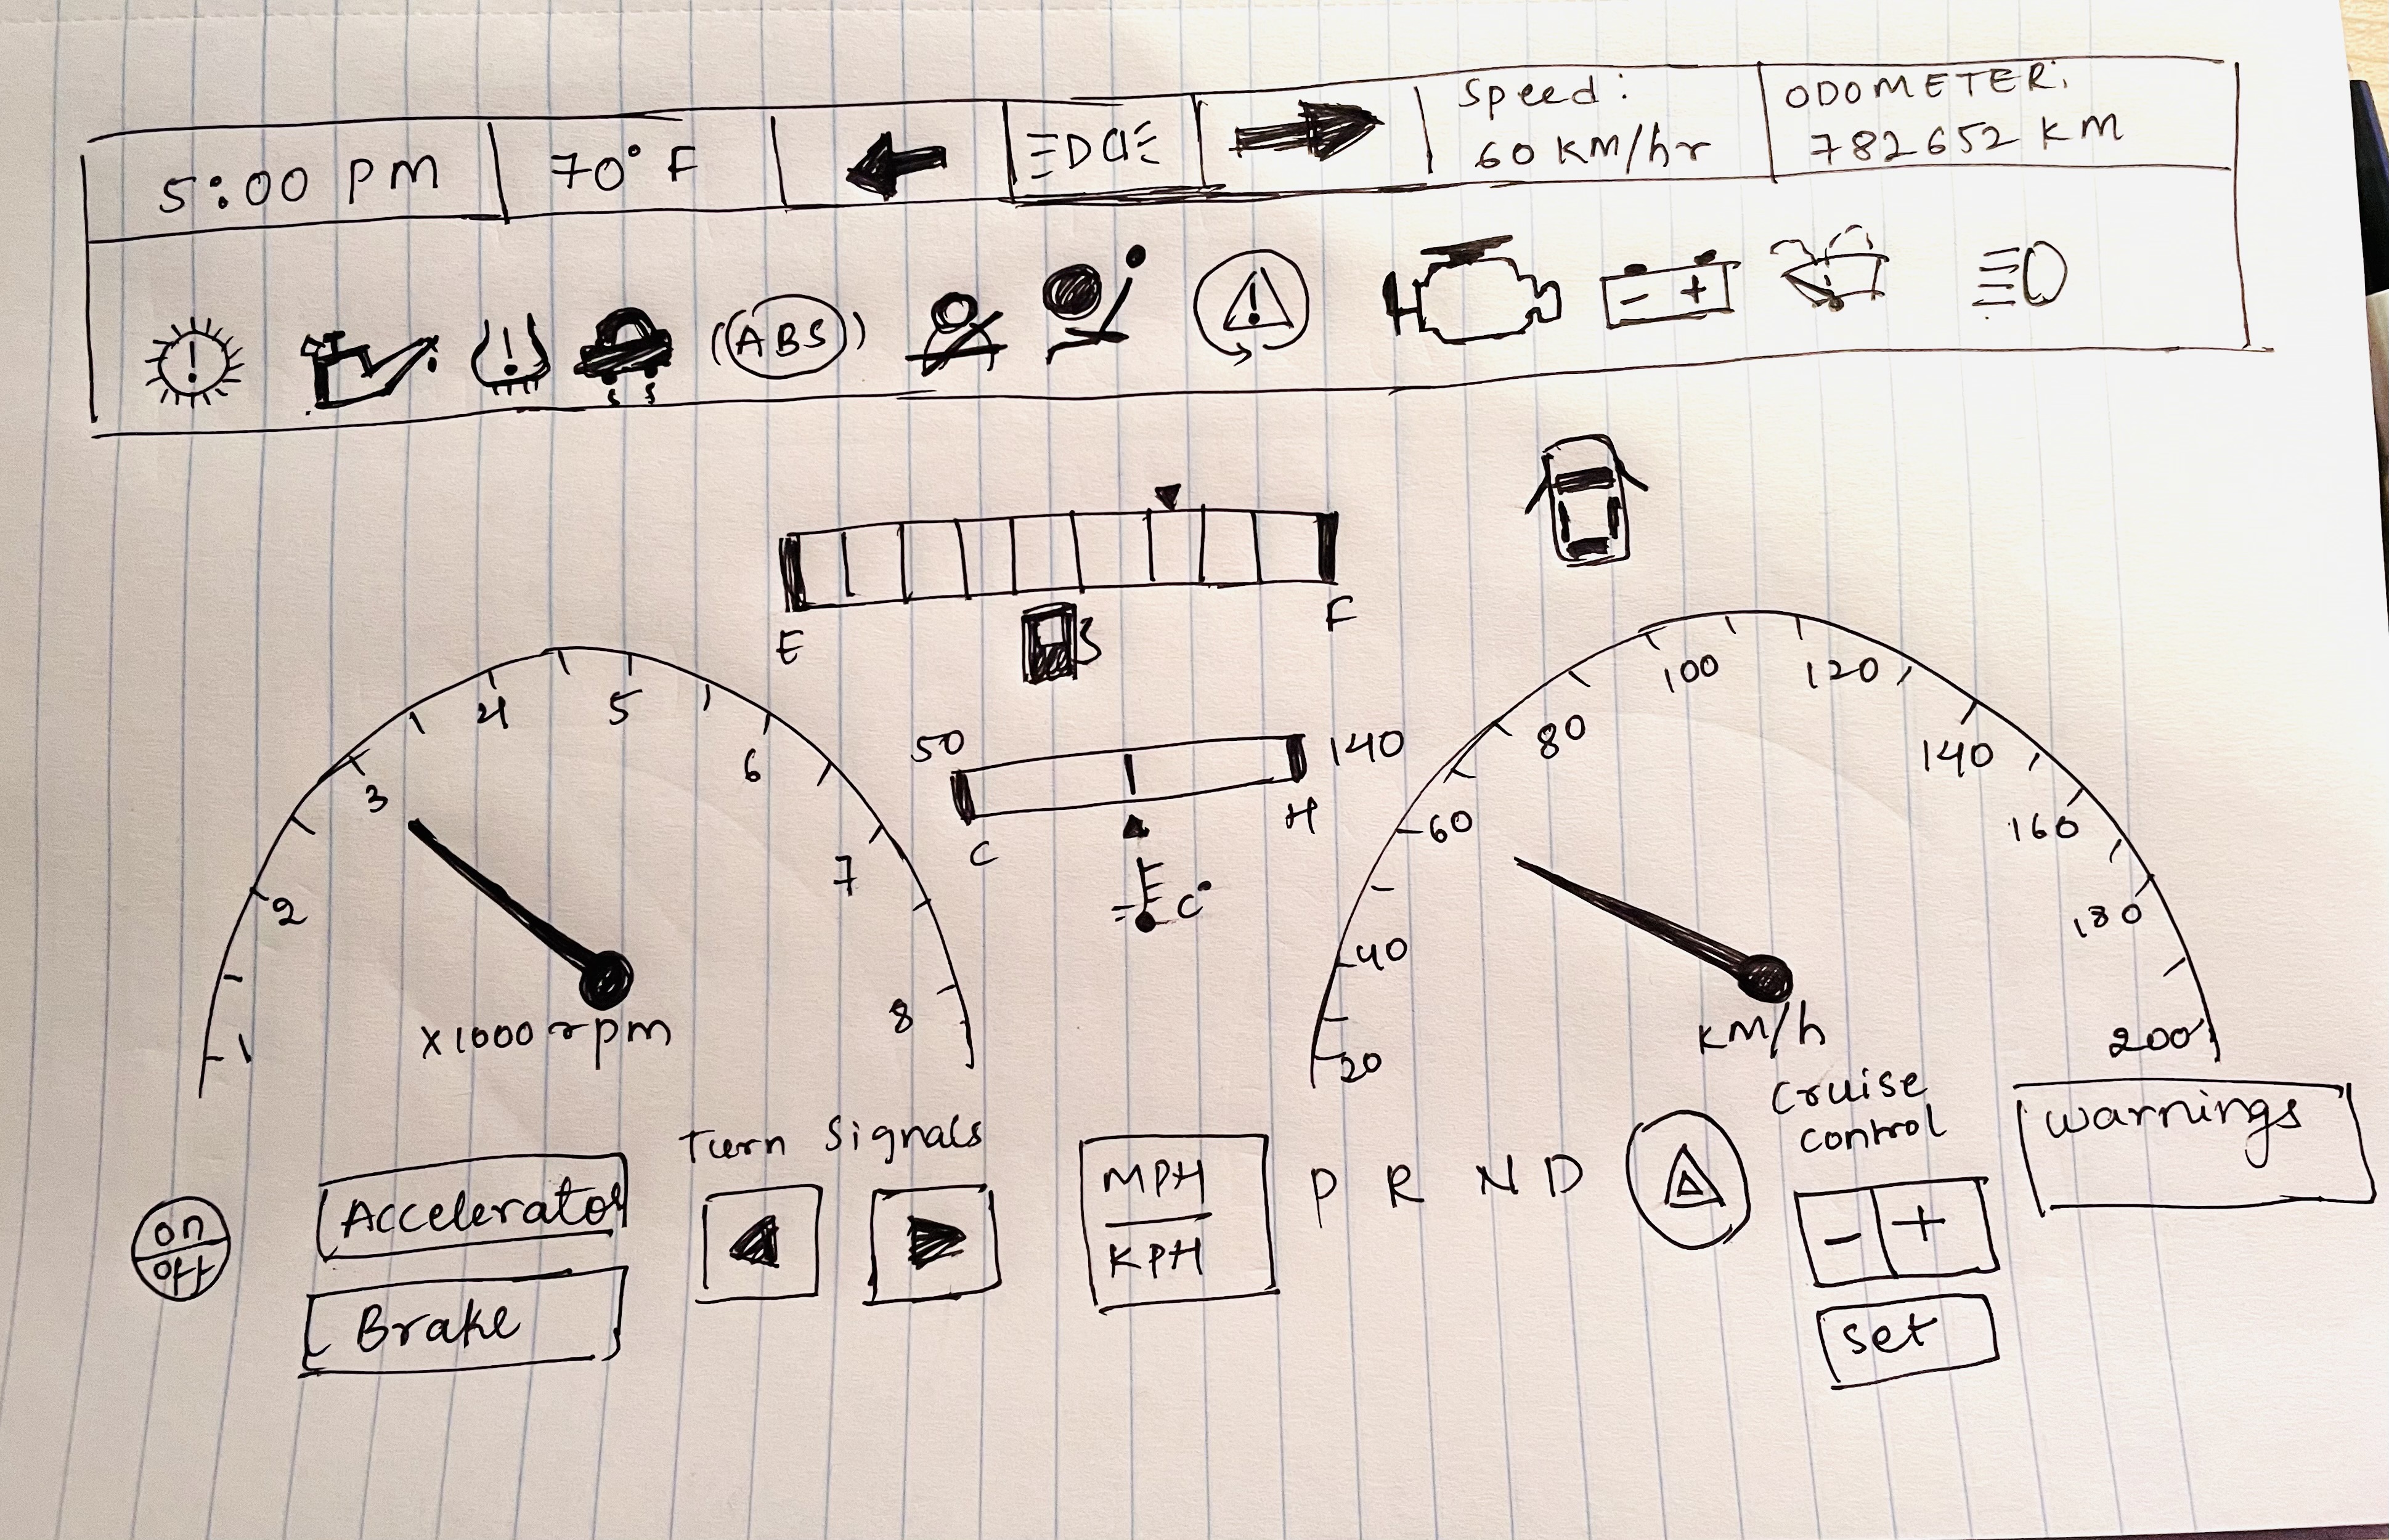 5:00 PM
70° F
Speed:
60 KM/hr
ODOMETER:
782652 KM
!
!
(ABS)
!
- +
E
F
50
140
C
H
C°
1
2
3
4
5
6
7
8
X1000 rpm
20
40
60
80
100
120
140
160
180
200
KM/h
on
off
Accelerator
Brake
Turn Signals
MPH
KPH
P R N D
Cruise
control
- +
set
warnings